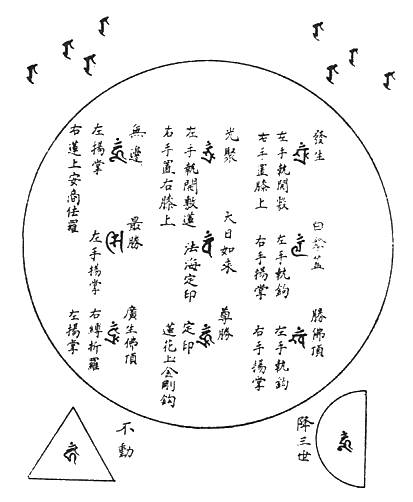 發生
左手執開敷
右手置膝上
白傘蓋
左手執鈎
右手揚掌
勝佛頂
左手執鈎
右手揚掌
光聚
左手執開敷蓮
右手置右膝上
大日如來
法海定印
尊勝
定印
蓮花上金剛鈎
無邊
左揚掌
右蓮上安商佉羅
最勝
左手揚掌
廣生佛頂
右縛折羅
左揚掌
降三世
不動